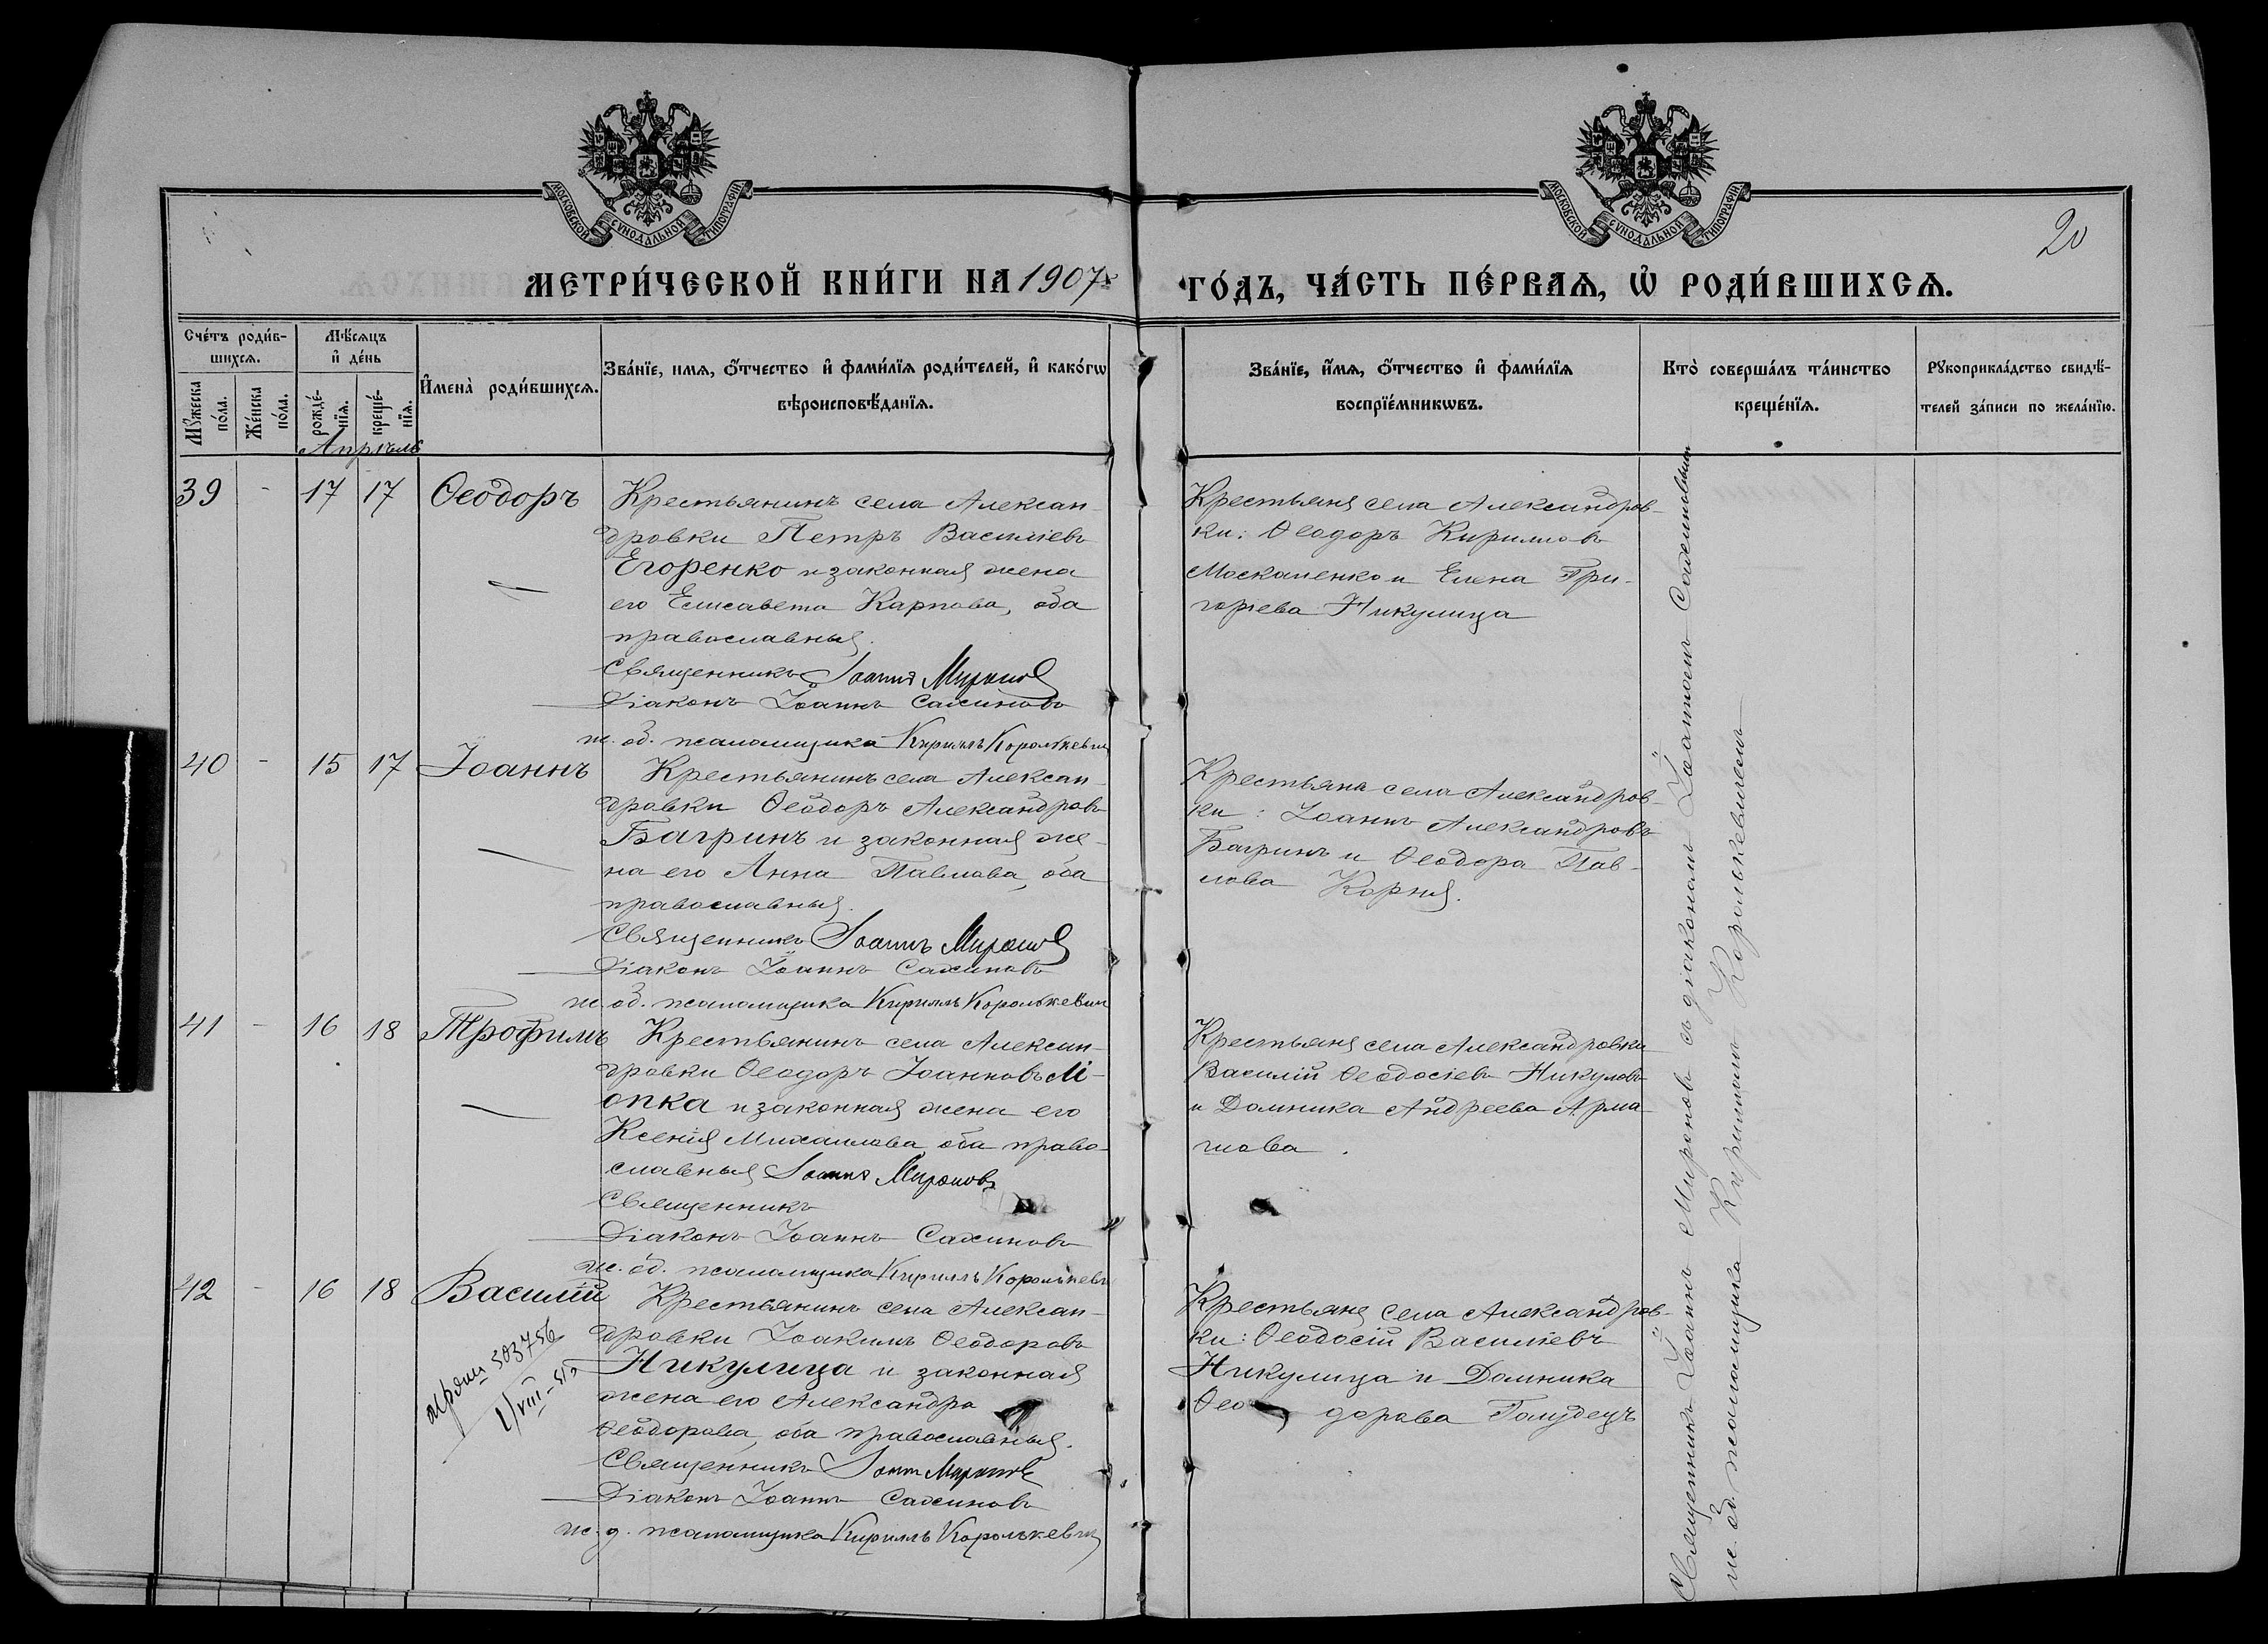 МОСКОВСКОЙ СѴНОДАЛЬНОЙ ТИПОГРАФІИ
МОСКОВСКОЙ СѴНОДАЛЬНОЙ ТИПОГРАФІИ
20
МЕТРИ́ЧЕСКОЙ КНИ́ГИ НА 1907
ГО́ДЪ, ЧА́СТЬ ПЕ́РВАѦ, Ѡ҆ РОДИ́ВШИХСѦ.
Сче́тъ роди́в-
шихсѧ.
Мꙋ́жеска по́ла.
Же́нска по́ла.
Мѣ́сѧцъ
и҆ де́нь
рожде́-
нїѧ.
креще́-
нїѧ.
И҆мена̀ роди́вшихсѧ.
Зва́нїе, имѧ, ѻ҆́тчество и҆ фами́лїѧ роди́телей, и҆ како́гѡ
вѣроисповѣ́данїѧ.
Зва́нїе, и҆́мѧ, ѻ҆́тчество и҆ фами́лїѧ
воспрїе́мникѡвъ.
Кто̀ соверша́лъ та́инство
креще́нїѧ.
Рꙋкоприкла́дство свидѣ́-
телей за́писи по жела́нїю.
Апрѣль
39 - 17 17 Ѳеодоръ
Крестьянинъ села Алексан-
дровки Петръ Василіевъ
Егоренко и законная жена
его Елисавета Карпова, оба
православныя.
Священникъ Іоаннъ Мироновъ
Діаконъ Іоаннъ Сахиновъ
ис. об. псаломщика Кириллъ Королькевич
Крестьяня села Александров-
ки: Ѳеодоръ Кирилловъ
Москаленко и Елена Гри-
горіева Никулица
40 - 15 17 Іоаннъ
Крестьянинъ села Алексан-
дровки Ѳеодоръ Александровъ
Багринъ и законная же-
на его Анна Павлова, оба
православныя.
Священникъ Іоаннъ Мироновъ
Діаконъ Іоаннъ Сахиновъ
ис. об. псаломщика Кириллъ Королькевич
Крестьяня села Александров-
ки: Іоаннъ Александровъ
Багринъ и Ѳеодора Пав-
лова Корня.
41 - 16 18 Трофимъ
Крестьянинъ села Алексан-
дровки Ѳеодоръ Іоанновъ М-
опка и законная жена его
Ксенія Михаилова, оба право-
славныя Іоаннъ Мироновъ
Священникъ
Діаконъ Іоаннъ Сахиновъ
ис. об. псаломщика Кириллъ Королькевъ
Крестьяня села Александровки
Василій Ѳеодосіевъ Никуловъ
и Домника Андреева Арма-
шова.
42 - 16 18 Василій
Крестьянинъ села Алексан-
дровки Іоакимъ Ѳеодоровъ
Никулица и законная
жена его Александра
Ѳеодорова, оба православныя.
Священникъ Іоаннъ Мироновъ
Діаконъ Іоаннъ Сахиновъ
ис. д. псаломщика Кириллъ Королькевич
503756
1/VIII-51
Крестьяне села Александров-
ки: Ѳеодосій Василіевъ
Никулица и Домника
Ѳео дорова Голубецъ
Священникъ Іоаннъ Мироновъ съ діакономъ Іоанномъ Сахиновымъ
ис. об. псаломщика Кирилломъ Королькевичемъ